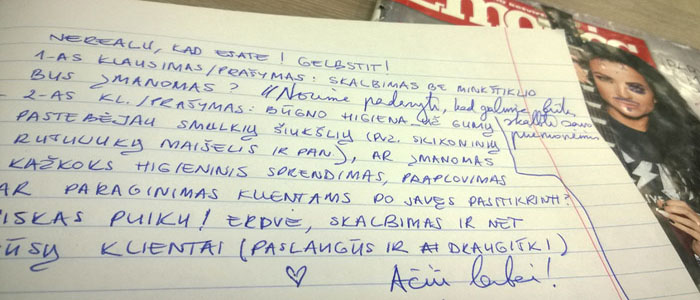 NEREALU, KAD ESATE! GELBSTIT!
1-AS KLAUSIMAS/PRAŠYMAS: SKALBIMAS BE MINKŠTIKLIO
BUS ĮMANOMAS? // Norime padaryti, kad galima būtų
skalbti savo
priemonėmis
- 2-AS KL./PRAŠYMAS: BŪGNO HIGIENA. UŽ GUMŲ
PASTEBĖJAU SMULKIŲ ŠIUKŠLIŲ (PVZ. SILIKONINIŲ
RUTULIUKŲ MAIŠELIS IR PAN.), AR ĮMANOMAS
KAŽKOKS HIGIENINIS SPRENDIMAS, PRAPLOVIMAS
AR PARAGINIMAS KLIENTAMS PO SAVĘS PASITIKRINTI?
ISKAS PUIKU! ERDVĖ, SKALBIMAS IR NET
ŪSŲ KLIENTAI (PASLAUGŪS IR DRAUGIŠKI)
Ačiū labai!